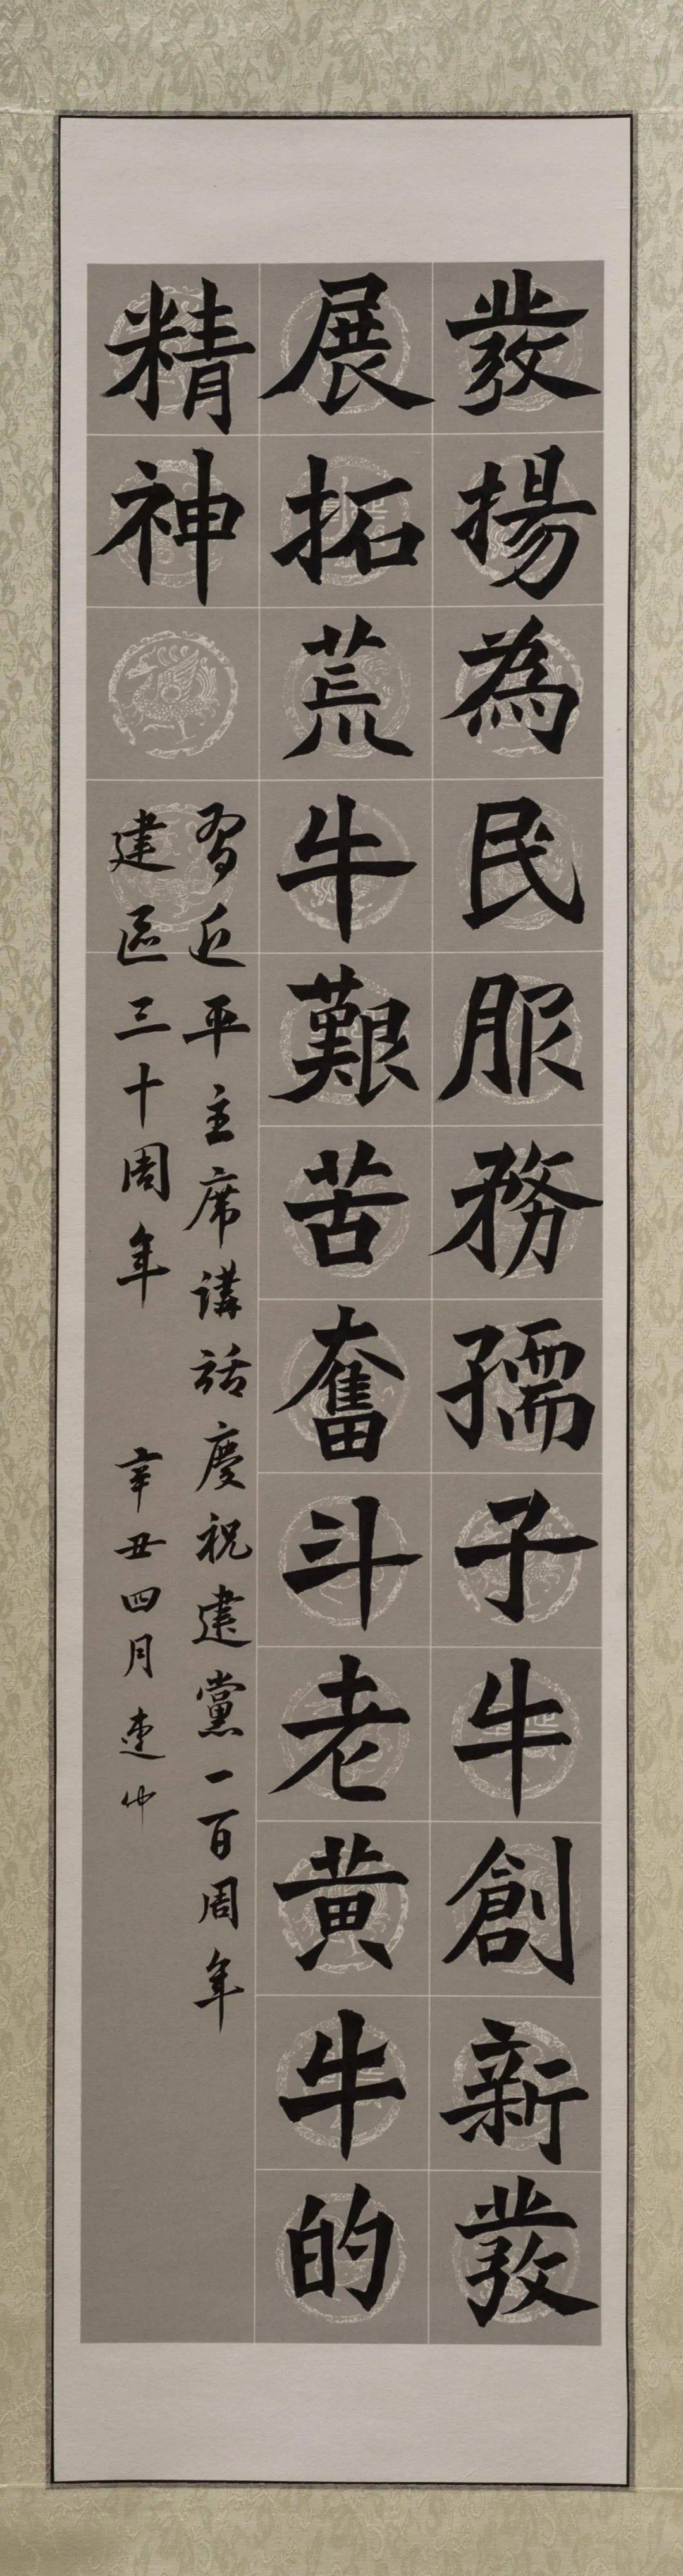 發揚為民服務孺子牛創新發
展拓荒牛艱苦奮斗老黄牛的
精神
習近平主席講話慶祝建黨一百周年
建區三十周年
辛丑四月連仲